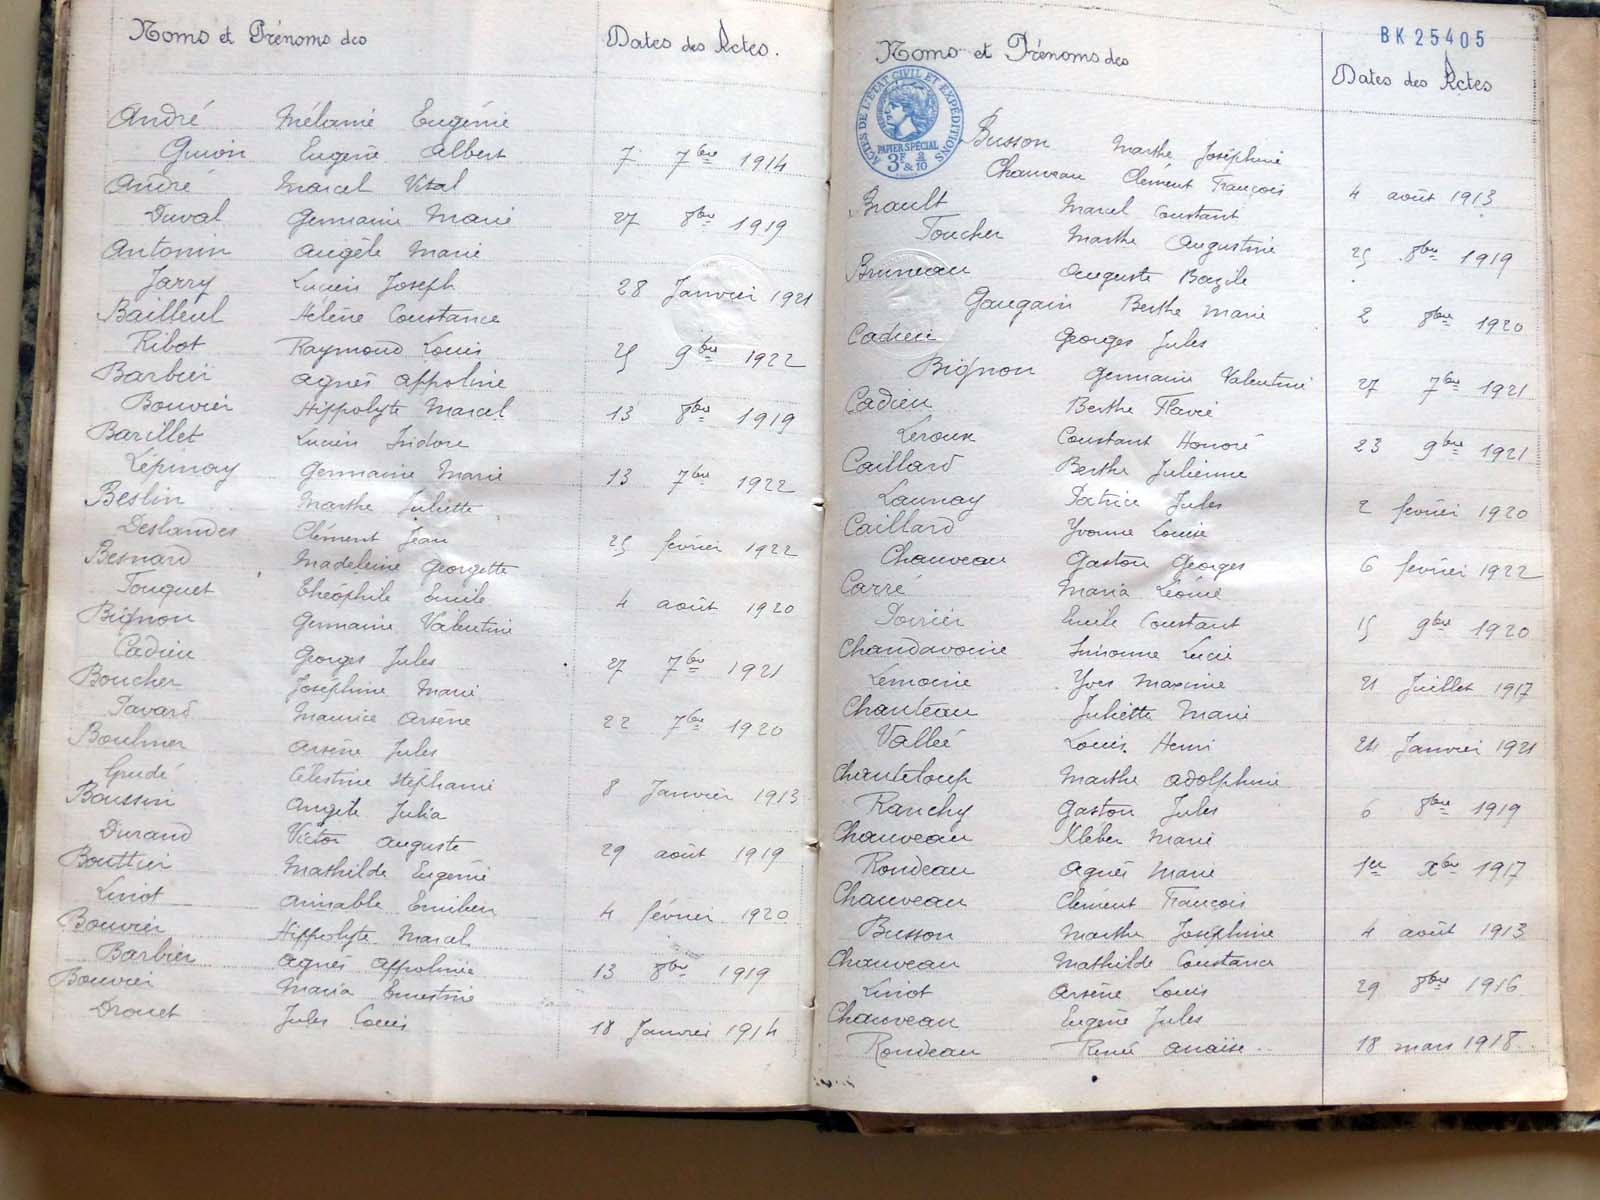 Noms et Prénoms des Dates des Actes.
André Mélanie Eugénie
Guion Eugène Albert 7 7bre 1914
André Marcel Vital
Duval Germaine Marie 27 8bre 1919
Antonin Angèle Marie
Jarry Lucien Joseph 28 Janvier 1921
Bailleul Hélène Constance
Ribot Raymond Louis 25 9bre 1922
Barbier Agnès Appoline
Bouvier Hippolyte Marcel 13 8bre 1919
Barillet Lucien Isidore
Lépinay Germaine Marie 13 7bre 1922
Beslin Marthe Juliette
Deslandes Clément Jean 25 février 1922
Besnard Madeleine Georgette
Touquet Théophile Emile 4 août 1920
Bignon Germaine Valentine
Cadieu Georges Jules 27 7bre 1921
Boucher Joséphine Marie
Pavard Maurice Arsène 22 7bre 1920
Boulmer Arsène Jules
Gudé Célestine Stéphanie 8 Janvier 1913
Boussin Angèle Julia
Durand Victor Auguste 29 août 1919
Bouttier Mathilde Eugénie
Linot Aimable Emilien 4 février 1920
Bouvier Hippolyte Marcel
Barbier Agnès Appolinie 13 8bre 1919
Bouvier Maria Ernestine
Drouet Jules Louis 18 Janvier 1914
BK 25405
Noms et Prénoms des Dates des Actes
ACTES DE L'ÉTAT CIVIL ET EXPÉDITIONS
PAPIER SPÉCIAL
3F & 2/10
Busson Marthe Joséphine
Chauveau Clément François 4 août 1913
Brault Marcel Constant
Foucher Marthe Augustine 25 8bre 1919
Bruneau Auguste Bazile
Gaugain Berthe Marie 2 8bre 1920
Cadieu Georges Jules
Bignon Germaine Valentine 27 7bre 1921
Cadieu Berthe Flavie
Leroux Constant Honoré 23 9bre 1921
Caillard Berthe Julienne
Launay Patrice Jules 2 février 1920
Caillard Yvonne Louise
Chauveau Gaston Georges 6 février 1922
Carré Maria Léonie
Poirier Emile Constant 15 9bre 1920
Chandavoine Simonne Lucie
Lemoine Yves Maxime 21 Juillet 1917
Chanteau Juliette Marie
Vallée Louis Henri 24 Janvier 1921
Chanteloup Marthe Adolphine
Ranchy Gaston Jules 6 8bre 1919
Chauveau Kleber Marie
Rondeau Agnès Marie 1er Xbre 1917
Chauveau Clément François
Busson Marthe Joséphine 4 août 1913
Chauveau Mathilde Constance
Linot Arsène Louis 29 8bre 1916
Chauveau Eugène Jules
Rondeau Renée Anaïse 18 mars 1918